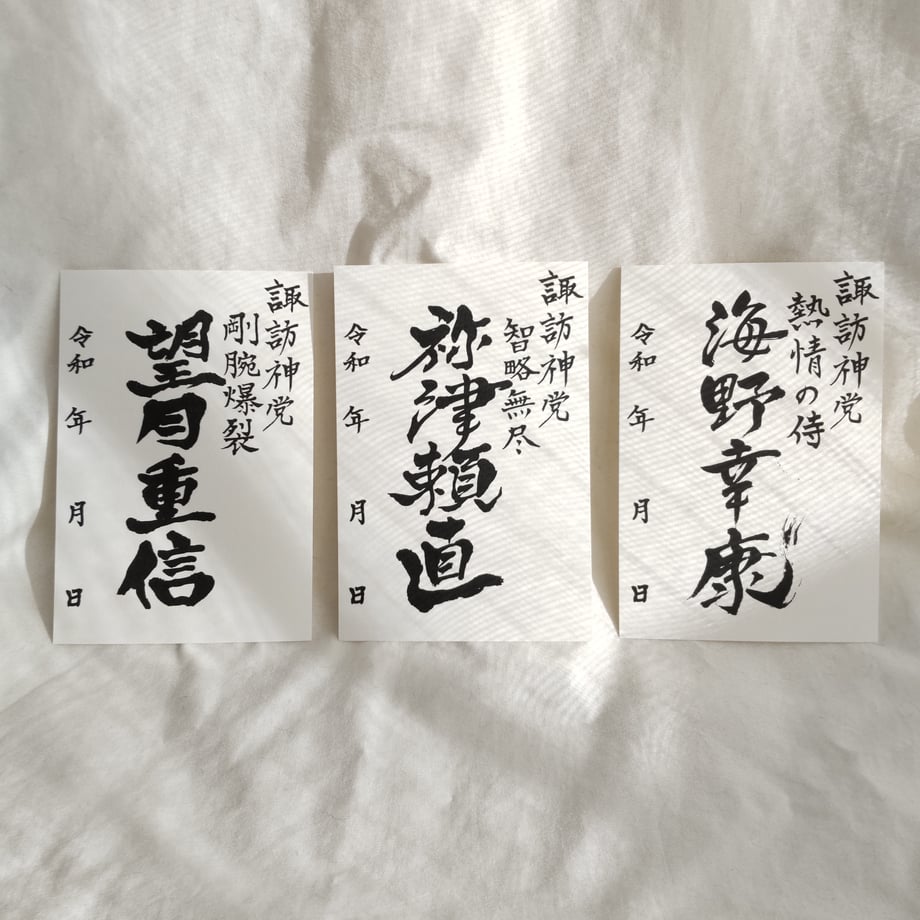 諏訪神党
熱情の侍
海野幸康
令和 年 月 日
諏訪神党
智略無尽
祢津頼直
令和 年 月 日
諏訪神党
剛腕爆裂
望月重信
令和 年 月 日